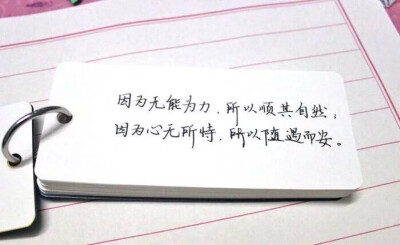 因为无能为力、所以顺其自然；
因为心无所恃、所以随遇而安。